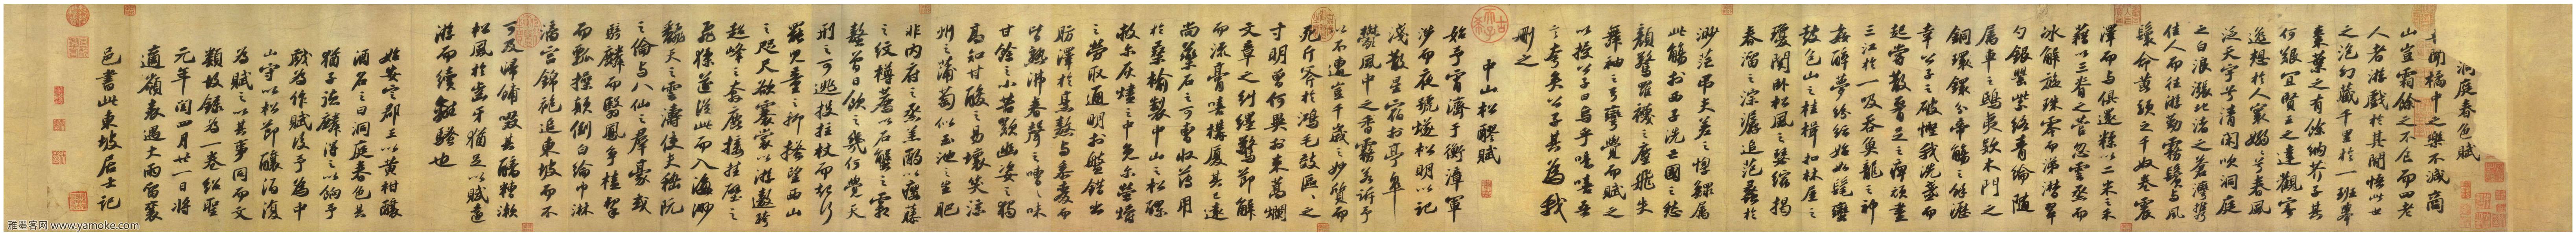 洞庭春色賦
吾聞橘中之樂不減商
山豈霜餘之不食而四老
人者游戲於其間悟此世
之泡幻藏千里於一班舉
棗葉之有餘納芥子其
何艱宜賢王之達觀寄
逸想於人寰嫋嫋兮春風
泛天宇兮清閑吹洞庭
之白浪漲北渚之蒼灣攜
佳人而往游勤霧鬢與風
鬟命黃頭之千奴卷震
澤而與俱還糅以二米之禾
藉以三脊之菅忽雲烝而
冰解旋珠零而涕潸翠
勺銀罌紫絡青綸隨
屬車之鴟夷款木門之
銅鐶分帝觴之餘瀝
幸公子之破慳我洗盞而
起嘗散腰足之痺頑盡
三江於一吸吞魚龍之神
姦醉夢紛紜始如髦蠻
鼓包山之桂楫扣林屋之
瓊關臥松風之瑟縮揭
春溜之淙潺追范蠡於
渺茫弔夫差之惸鰥屬
此觴於西子洗亡國之愁
顏驚羅襪之塵飛失
舞袖之弓彎覺而賦之
以授公子曰烏乎噫嘻吾
言夸矣公子其為我
刪之
中山松醪賦
始予宵濟于衡漳軍
涉而夜號燧松明以記
淺散星宿於亭皐
鬱風中之香霧若訴予
以不遭豈千歲之妙質而
死斤斧於鴻毛效區區之
寸明曾何異於束蒿爛
文章之糾纏驚節解
而流膏嘻構厦其已遠
尚藥石之可曹收薄用
於桑榆製中山之松醪
救爾灰燼之中免爾螢爝
之勞取通明於盤錯出
肪澤於烹熬與黍麥而
皆熟沸舂聲之嘈嘈味
甘餘之小苦歎幽姿之獨
高知甘酸之易壞笑涼
州之蒲萄似玉池之生肥
非內府之烝羔酌以癭藤
之紋樽薦以石蟹之霜
螯曾日飲之幾何覺天
刑之可逃投拄杖而起行
罷兒童之抑搔望西山
之咫尺欲褰裳以游遨跨
超峰之奔鹿接挂壁之
飛猱遂從此而入海渺
翻天之雲濤使夫嵇阮
之倫與八仙之羣豪或
騎麟而翳鳳爭榼挈
而瓢操顛倒白綸巾淋
漓宮錦袍追東坡而不
可及歸餔歠其醨糟漱
松風於齒牙猶足以賦遠
游而續離騷也
始安定郡王以黃柑釀
酒名之曰洞庭春色其
猶子德麟得之以餉予
戲為作賦後予為中
山守以松節釀酒復
為賦之以其事同而文
類故錄為一卷紹聖
元年閏四月廿一日將
適嶺表遇大雨留襄
邑書此東坡居士記
雅墨客网 www.yamoke.com